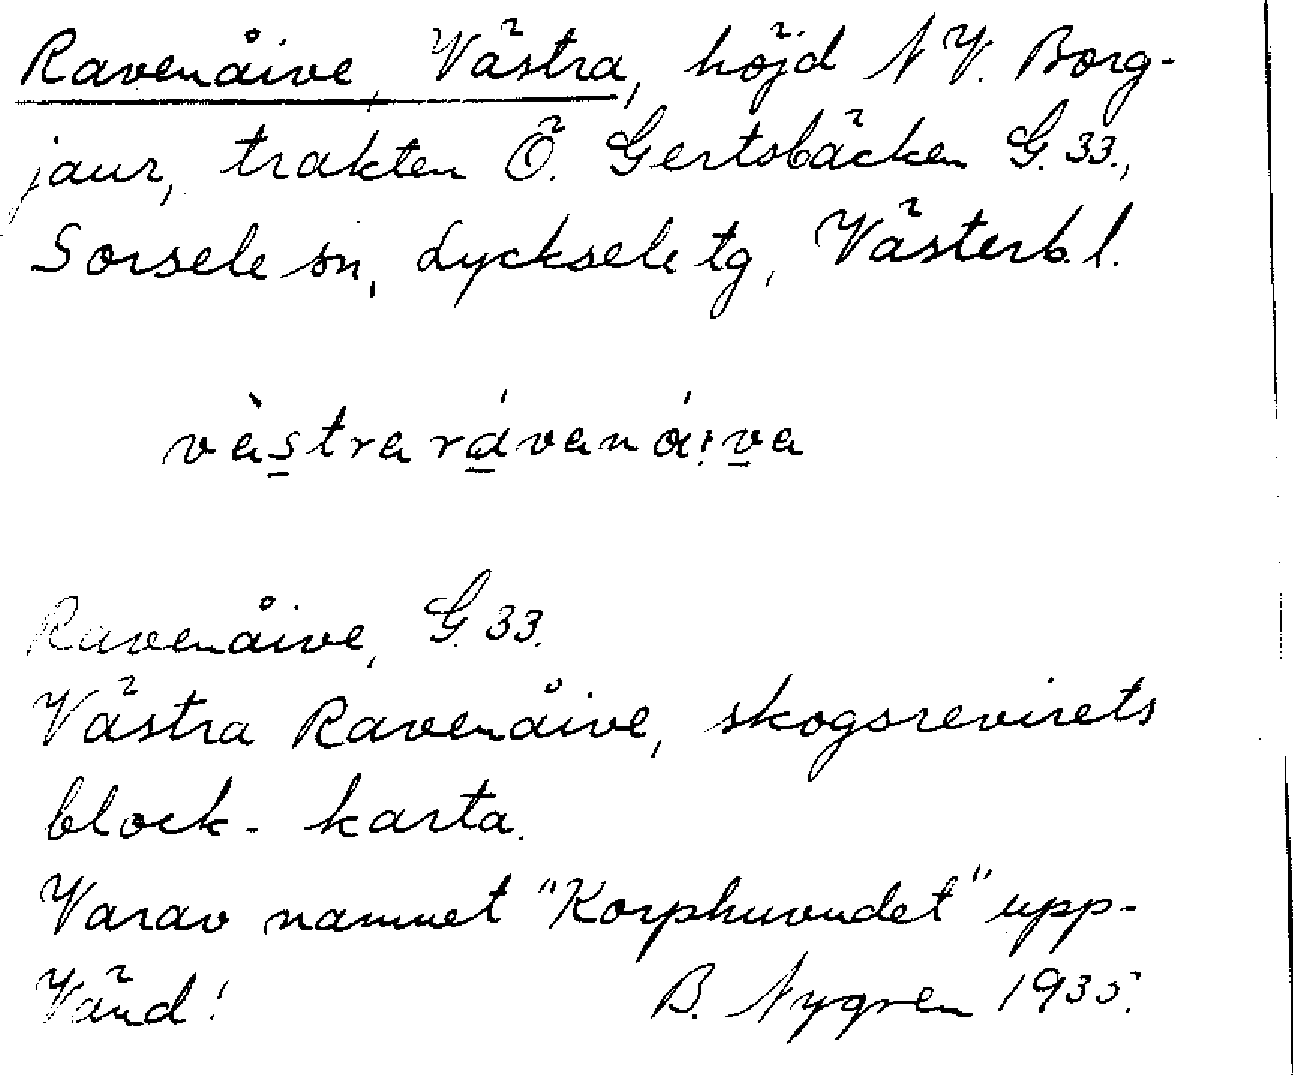 Ravenåive, Västra, höjd N V. Borg-
jaur, trakten Ö. Gertsbäcken G. 33.,
Sorsele sn, Lycksele tg, Västerb. l.
vàstra rávenái:va
Ravenåive, G. 33.
Västra Ravenåive, skogsrevirets
block-karta.
Varav namnet "Korphuvudet" upp-
Vänd! B. Nygren 1935.